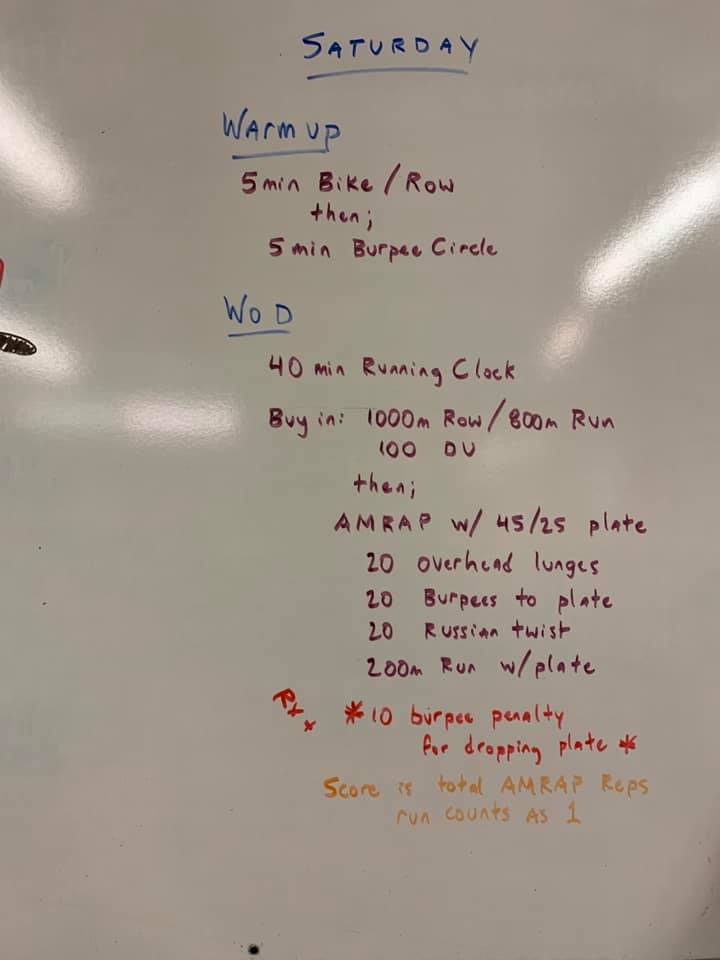 SATURDAY
WARM UP
5 min Bike / Row
then;
5 min Burpee Circle
WOD
40 min Running Clock
Buy in: 1000m Row / 800m Run
100 DU
then;
AMRAP w/ 45/25 plate
20 overhead lunges
20 Burpees to plate
20 Russian twist
200m Run w/plate
Rx+ *10 burpee penalty
for dropping plate *
Score is total AMRAP Reps
run counts as 1